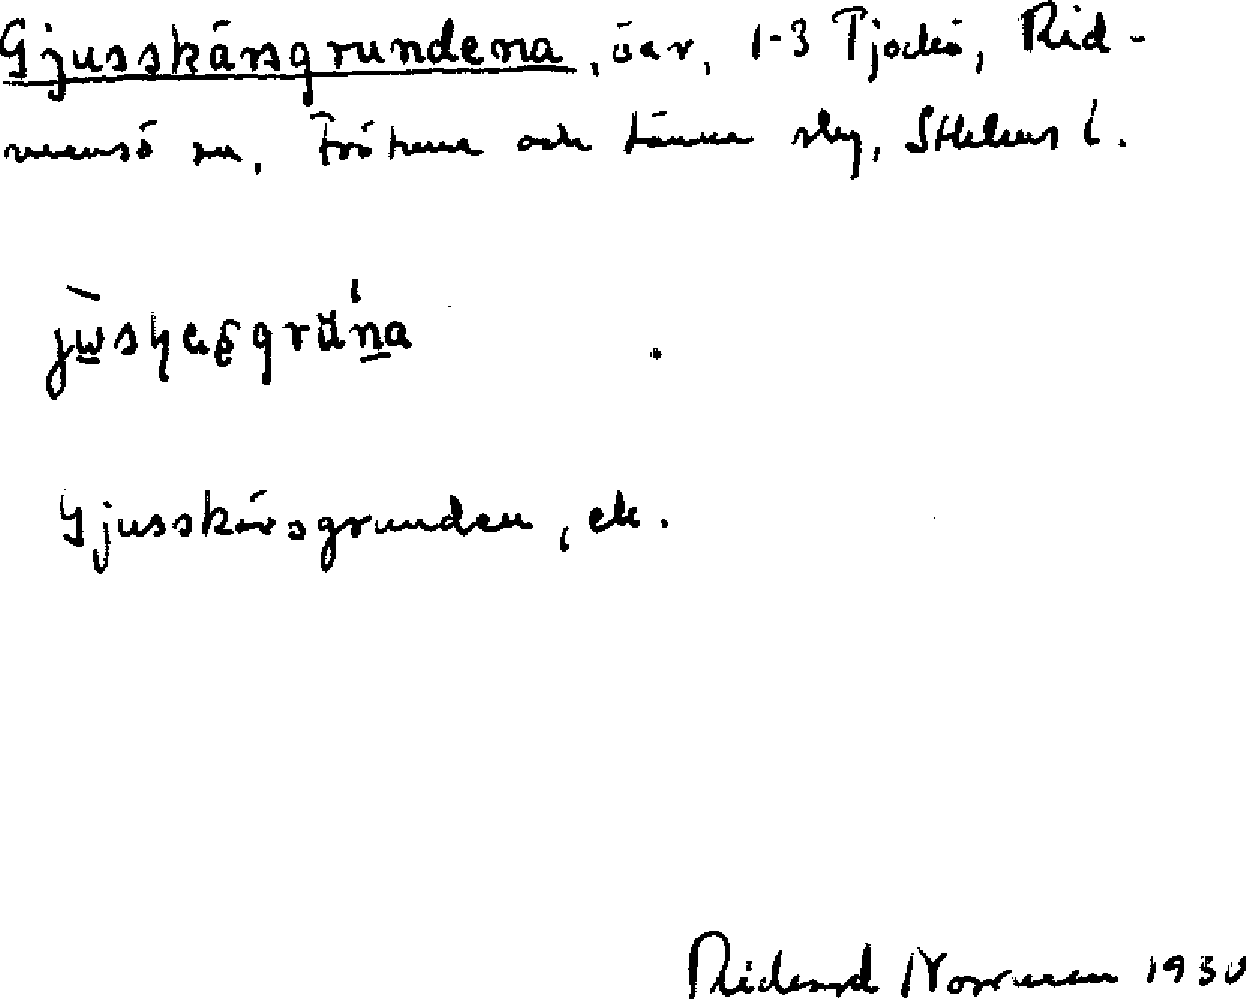 Gjusskärsgrundena, öar, 1-3 Tjockö, Rid-
mansö sn, Frötuna och Länna slg, Sthlms l.
Gjusskärsgrunden, ek.
Rickard Norrman 1930